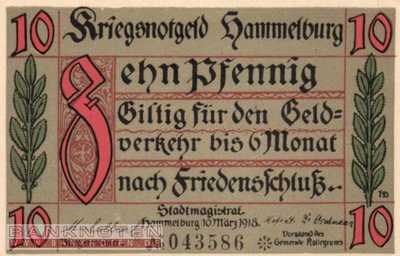 10 Kriegsnotgeld Hammelburg 10
Zehn Pfennig
Giltig für den Geld-
verkehr bis 6 Monat
nach Friedensschluß.
Stadtmagistrat.
Hammelburg 10 März 1918.
Bürgermeister.
Vorstand des
Gemeinde Kollegiums
10 043586 10
BANKNOTEN